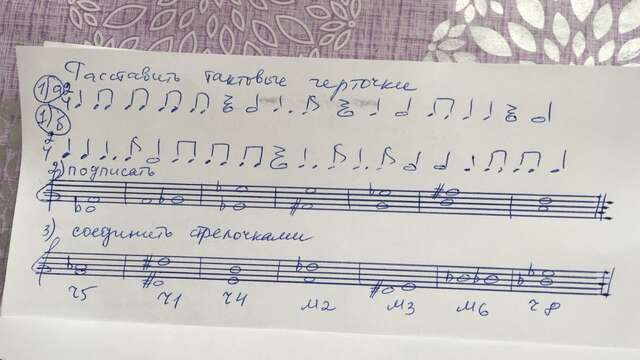 Расставить тактовые черточки
1)а 2/4
1)б
2/4
2) подписать
3) соединить стрелочками
ч5 ч1 ч4 м2 м3 м6 ч8